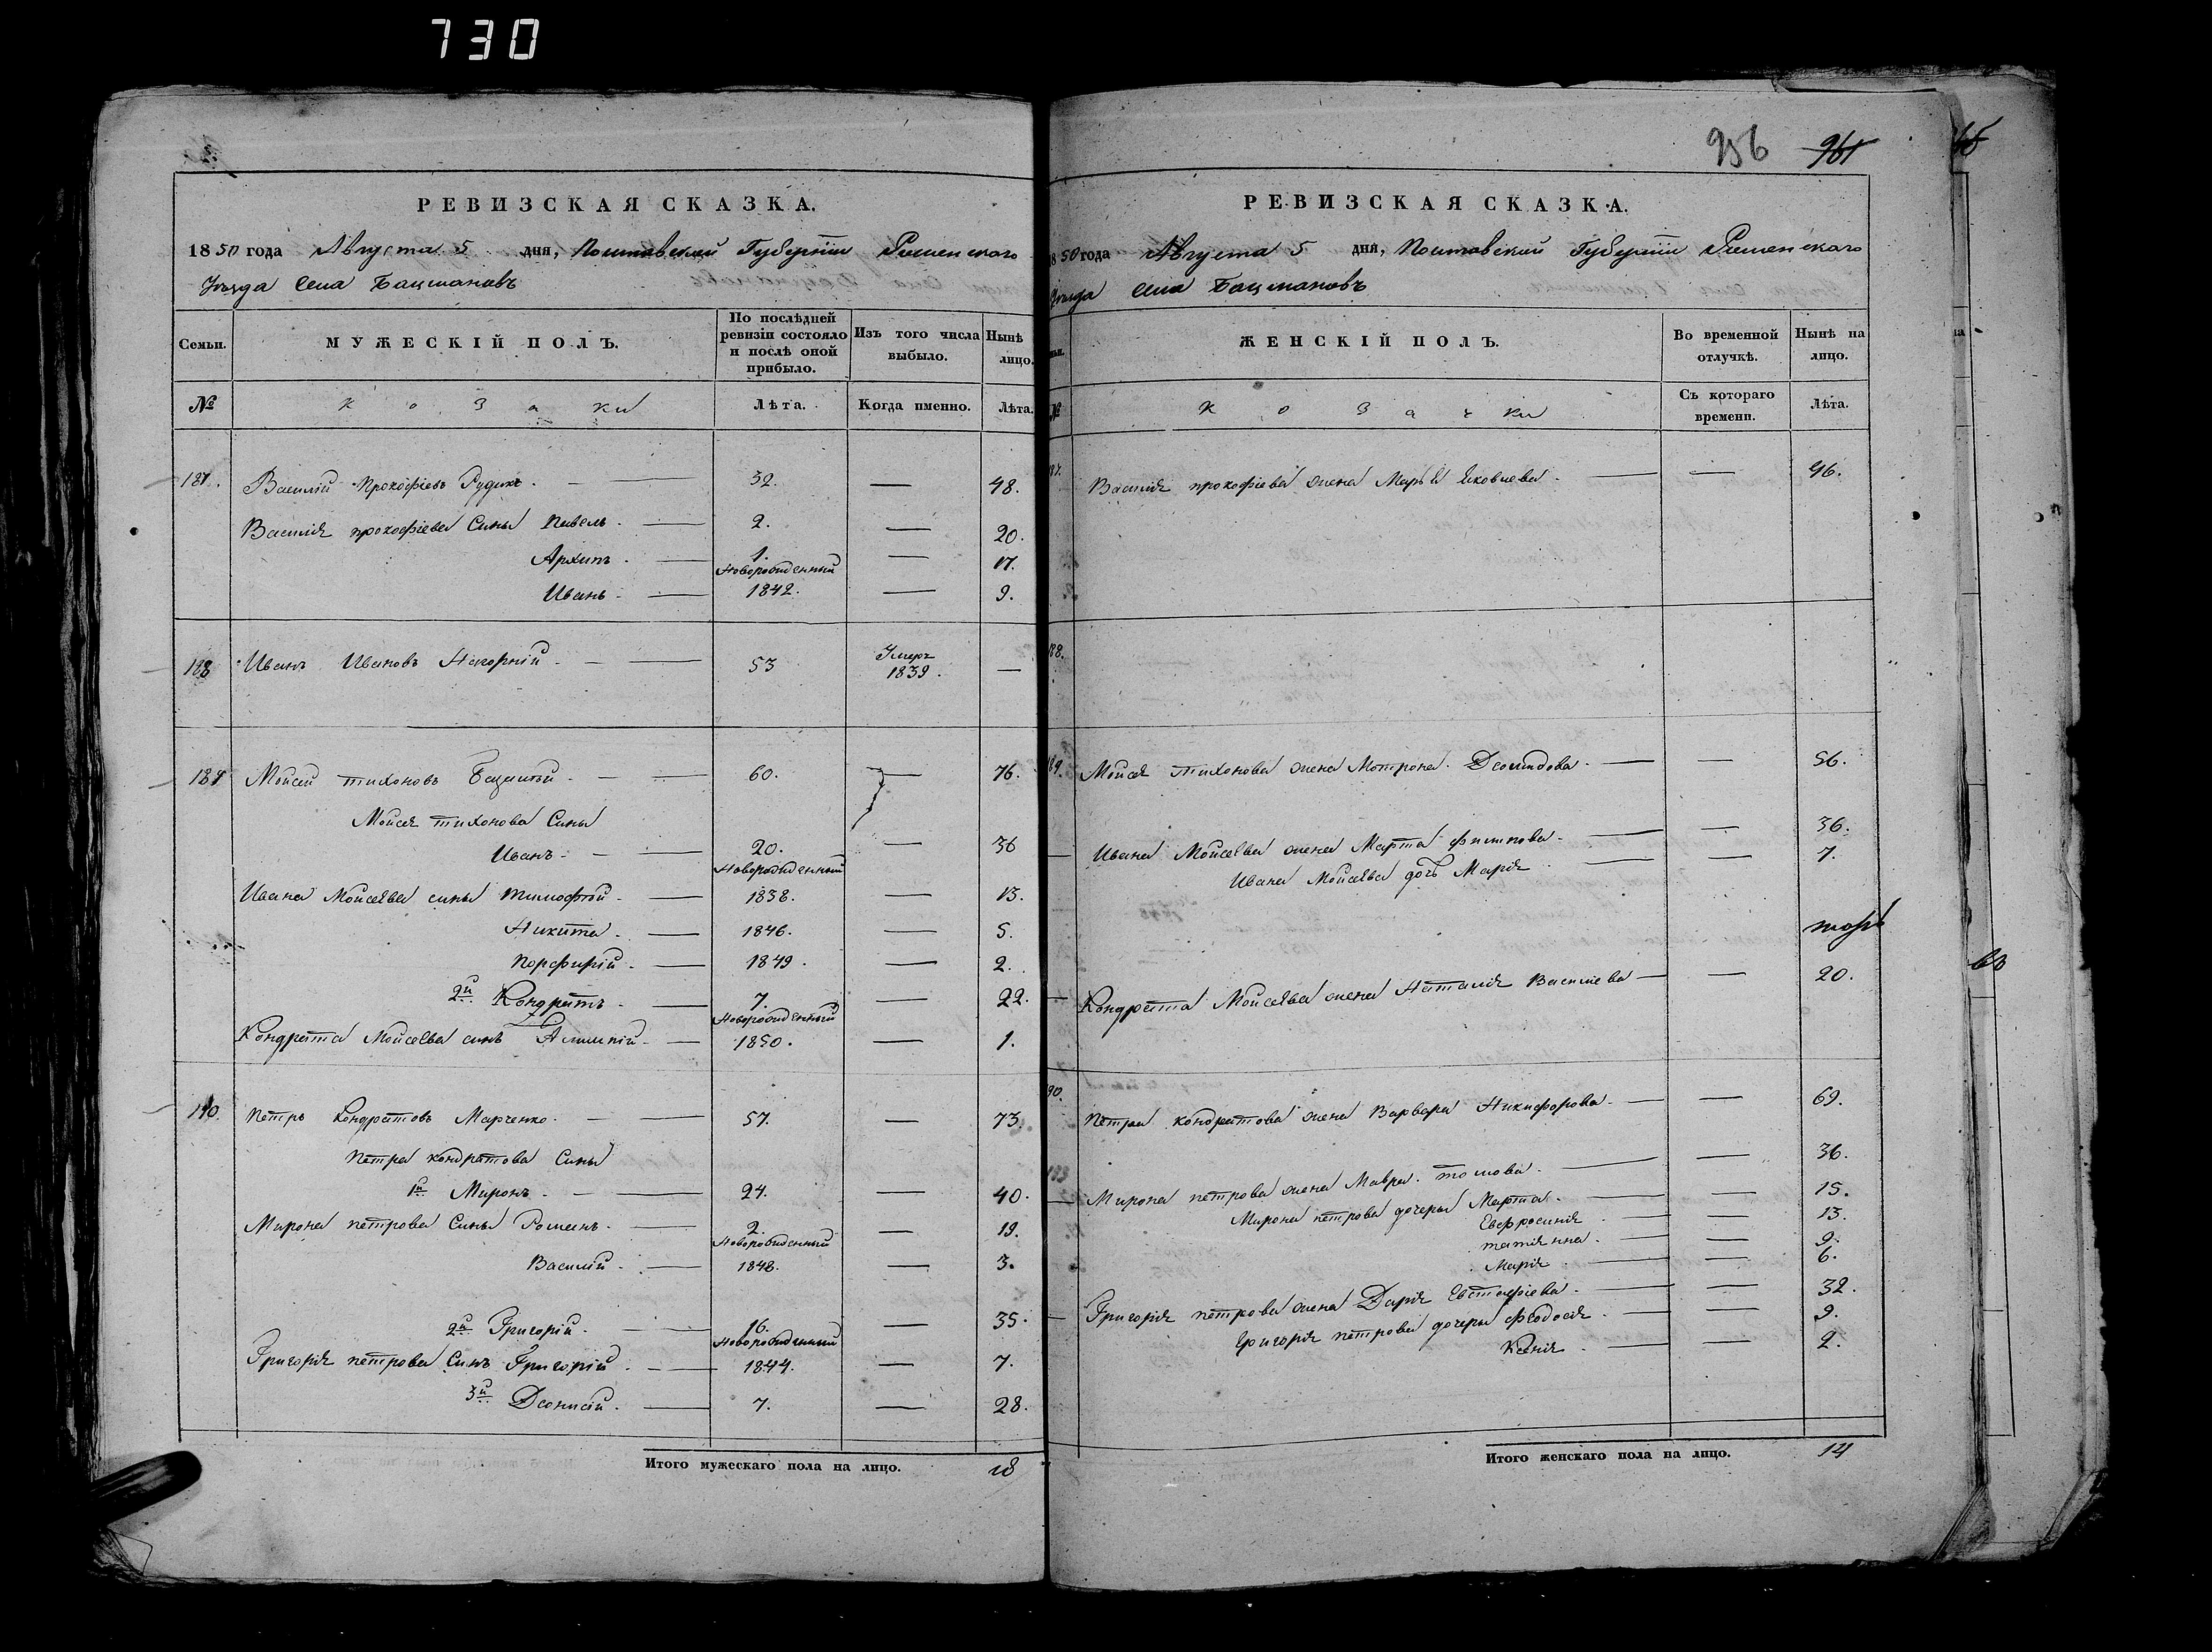 730
956 961
РЕВИЗСКАЯ СКАЗКА.
1850 года Августа 5 дня, Полтавской Губерніи Роменскаго
Уѣзда Села Бацмановъ
Семьи. МУЖЕСКІЙ ПОЛЪ. По послѣдней ревизіи состояло и послѣ оной прибыло. Изъ того числа выбыло. Нынѣ лицо.
№ Козаки Лѣта. Когда именно. Лѣта.
187. Василій Прокофіевъ Рудикъ. — 32. — 48.
Василія прокофіева Сины Павелъ. — 2. — 20.
Архипъ. — 1. — 17.
Новорожденный
Иванъ. — 1842. — 9.
188 Иванъ Ивановъ Нагорній. — 53 Умеръ 1839. —
189 Мойсей тихоновъ — 60. — 76.
Мойсея тихонова Сины
Иванъ. — 20. — 36
Новорожденный
Ивана Мойсеева сины тимофей. — 1838. — 13.
Никита. — 1846. — 5.
Порфирій. — 1849. — 2.
2й Кондратъ. — 7. — 22.
Новорожденный
Кондрата Мойсеева синъ — 1850. — 1.
190. Петръ Кондратовъ Марченко. — 57. — 73.
Петра кондратова Сины
1й Миронъ. — 24. — 40.
Мирона петрова Сины Романъ. — 2. — 19.
Новорожденный
Василій. — 1848. — 3.
2й Григорій. — 16. — 35.
Новорожденный
Григорія петрова Синъ Григорій. — 1844. — 7.
3й Деонисій. — 7. — 28.
Итого мужескаго пола на лицо. 18
РЕВИЗСКАЯ СКАЗКА.
50 года Августа 5 дня, Полтавской Губерніи Роменскаго
Уѣзда Села Бацмановъ
ЖЕНСКІЙ ПОЛЪ. Во временной отлучкѣ. Нынѣ на лицо.
№ Козачки Съ котораго времени. Лѣта.
87. Василія прокофіева жена Марья Яковлева. — — 46.
188.
189. Мойсея тихонова жена Мотрона — — 56.
Ивана Мойсеева жена Марта — — 36.
Ивана Мойсеева дочь Марія — — 7.
Кондрата Мойсеева жена Наталія Василіева — — 20.
190. Петра кондратова жена Варвара Никифорова. — — 69.
Мирона петрова жена Мавра. томова. — — 36.
Мирона петрова дочери Марта. — — 15.
Евфросинія — — 13.
татіянна. — — 9.
Марія — — 6.
Григорія петрова жена Дарія Евстафіева. — — 32.
Григорія петрова дочери Феодосія. — — 9.
Ксенія. — — 2.
Итого женскаго пола на лицо. 14